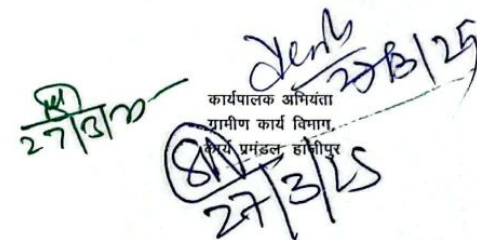 27/3/25
कार्यपालक अभियंता
ग्रामीण कार्य विभाग,
कार्य प्रमंडल, हाजीपुर
27/3/25